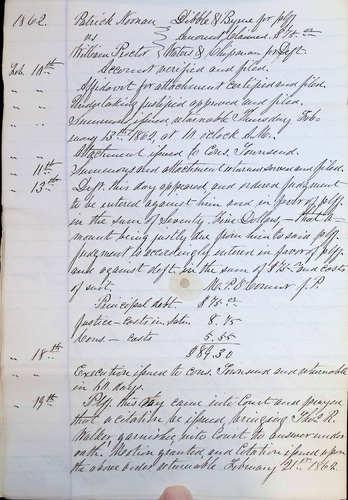 1862. Patrick Noonan } Dibble & Byrne for plff
vs } Amount Claimed. $75.00
William Proctor } Waters & Chipman for Deft.
Feb. 10th Account verified and filed.
" " Affidavit for attachment certified and filed.
" " Undertaking justified approved and filed.
" " Summons issued returnable Thursday Feb-
ruary 13th 1862, at 10 o'clock A.M.
" " Attachment issued to Cons. Townsend.
" 11th Summons and attachment returned served and filed.
" 13th Deft. this day appeared and ordered judgment
to be entered against him and in favor of plff.
in the sum of Seventy five Dollars, — that a-
mount being justly due from him to said plff.
Judgment is accordingly entered in favor of plff.
and against deft. in the sum of $75 and costs
of suit. J.P.
Principal debt. $75.00
Justice - costs 8.75
Cons. - costs 5.55
$89.30
" 18th
Execution issued to cons. Townsend and returnable
in 60 days.
" 19th Plff. this day came into Court and prayed
that a citation be issued bringing Thos. R.
Walker garnishee into Court to answer under
oath. Motion granted, and citation issued upon
the above order returnable February 21st 1862